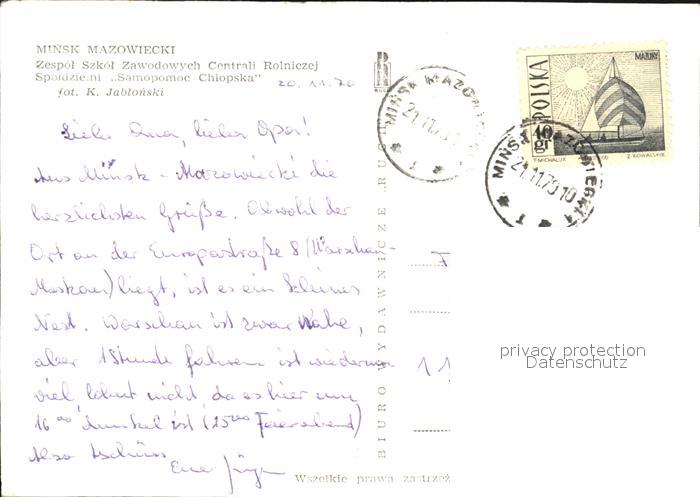 MIŃSK MAZOWIECKI
Zespół Szkół Zawodowych Centrali Rolniczej
Spółdzielni „Samopomoc Chłopska”
fot. K. Jabłoński
20.11.70
Liebe Oma, lieber Opa!
Aus Mińsk-Mazowiecki die
herzlichsten Grüße. Obwohl der
Ort an der Europastraße 8 (Warschau-
Moskau) liegt, ist es ein kleines
Nest. Warschau ist zwar Nähe,
aber 1 Stunde fahren ist wiederum
viel lohnt nicht, da es hier um
16 00 dunkel ist (15 00 Feierabend)
Also tschüss
Euer Jürgen
BIURO WYDAWNICZE „RUCH”
RUCH
MIŃSK MAZOWIECKI
21.11.70
1
POLSKA
MAZURY
10 gr
T. MICHALUK
Z. KOWALSKIE
MIŃSK MAZOWIECKI 1
21.11.70 10
F
11
Wszelkie prawa zastrzeż
privacy protection
Datenschutz